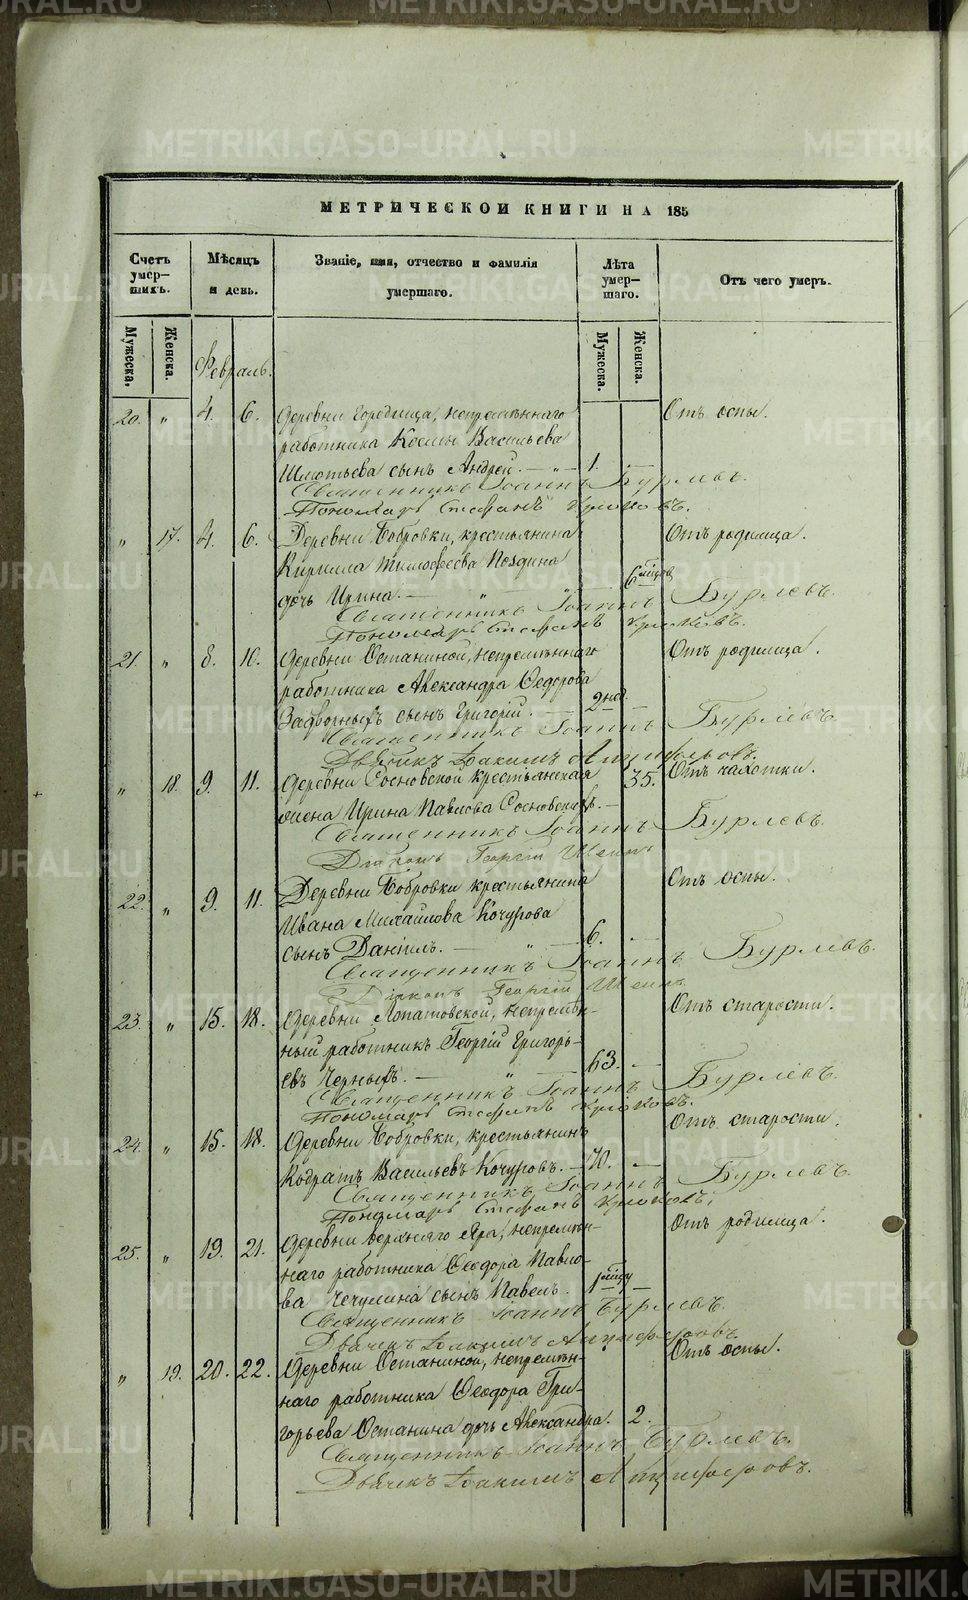 METRIKI.GASO-URAL.RU
МЕТРИЧЕСКОЙ КНИГИ НА 185
Счетъ умер-шихъ.
Мѣсяцъ и день.
Званіе, имя, отчество и фамилія умершаго.
Лѣта умер-шаго.
Отъ чего умеръ.
Мужеска.
Женска.
Февраль.
Мужеска.
Женска.
20. „ 4. 6. Деревни непремѣннаго Отъ оспы.
работника Космы Васильева
сынъ Андрей. — „ — 1. —
Священникъ Іоаннъ Бурлевъ.
Пономарь Стефанъ Крюковъ.
„ 17. 4. 6. Деревни Бобровки, крестьянина Отъ родимца.
Кирилла Тимофеева
дочь Ирина. — „ „ 6 мѣсяц
Священникъ Іоаннъ Бурлевъ.
Пономарь Стефанъ Крюковъ.
21. „ 8. 10. Деревни Останиной, непремѣннаго Отъ родимца.
работника Александра Ѳедорова
сынъ Григорій. — 2 нед. —
Священникъ Іоаннъ Бурлевъ.
Дьячекъ Іоакимъ
„ 18. 9. 11. Деревни Сосновской крестьянская 35. Отъ чахотки.
жена Ирина Павлова Сосновскихъ. —
Священникъ Іоаннъ Бурлевъ.
Діаконъ Георгій Шеинъ
22. „ 9. 11. Деревни Бобровки крестьянина Отъ оспы.
Ивана Михайлова Кочурова
сынъ Даніилъ. — „ — 6. —
Священникъ Іоаннъ Бурлевъ.
Діаконъ Георгій Шеинъ.
23. „ 15. 18. Деревни Лопатовской, непремѣн- Отъ старости.
ный работникъ Георгій Григорь-
евъ Черныхъ. — „ — 63. —
Священникъ Іоаннъ Бурлевъ.
Пономарь Стефанъ Крюковъ.
24. „ 15. 18. Деревни Бобровки, крестьянинъ Отъ старости.
Кодратъ Васильевъ Кочуровъ. — 70. —
Священникъ Іоаннъ Бурлевъ.
Пономарь Стефанъ Крюковъ.
25. „ 19. 21. Деревни Верхняго Яра, непремѣн- Отъ родимца.
наго работника Ѳеодора Павло-
ва Чечулина сынъ Павелъ. 1 мѣсяцу —
Священникъ Іоаннъ Бурлевъ.
Дьячекъ Іоакимъ
„ 19. 20. 22. Деревни Останиной, непремѣн- Отъ оспы.
наго работника Ѳеодора Гри-
горьева Останина дочь Александра. 2.
Священникъ Іоаннъ Бурлевъ.
Дьячекъ Іоакимъ